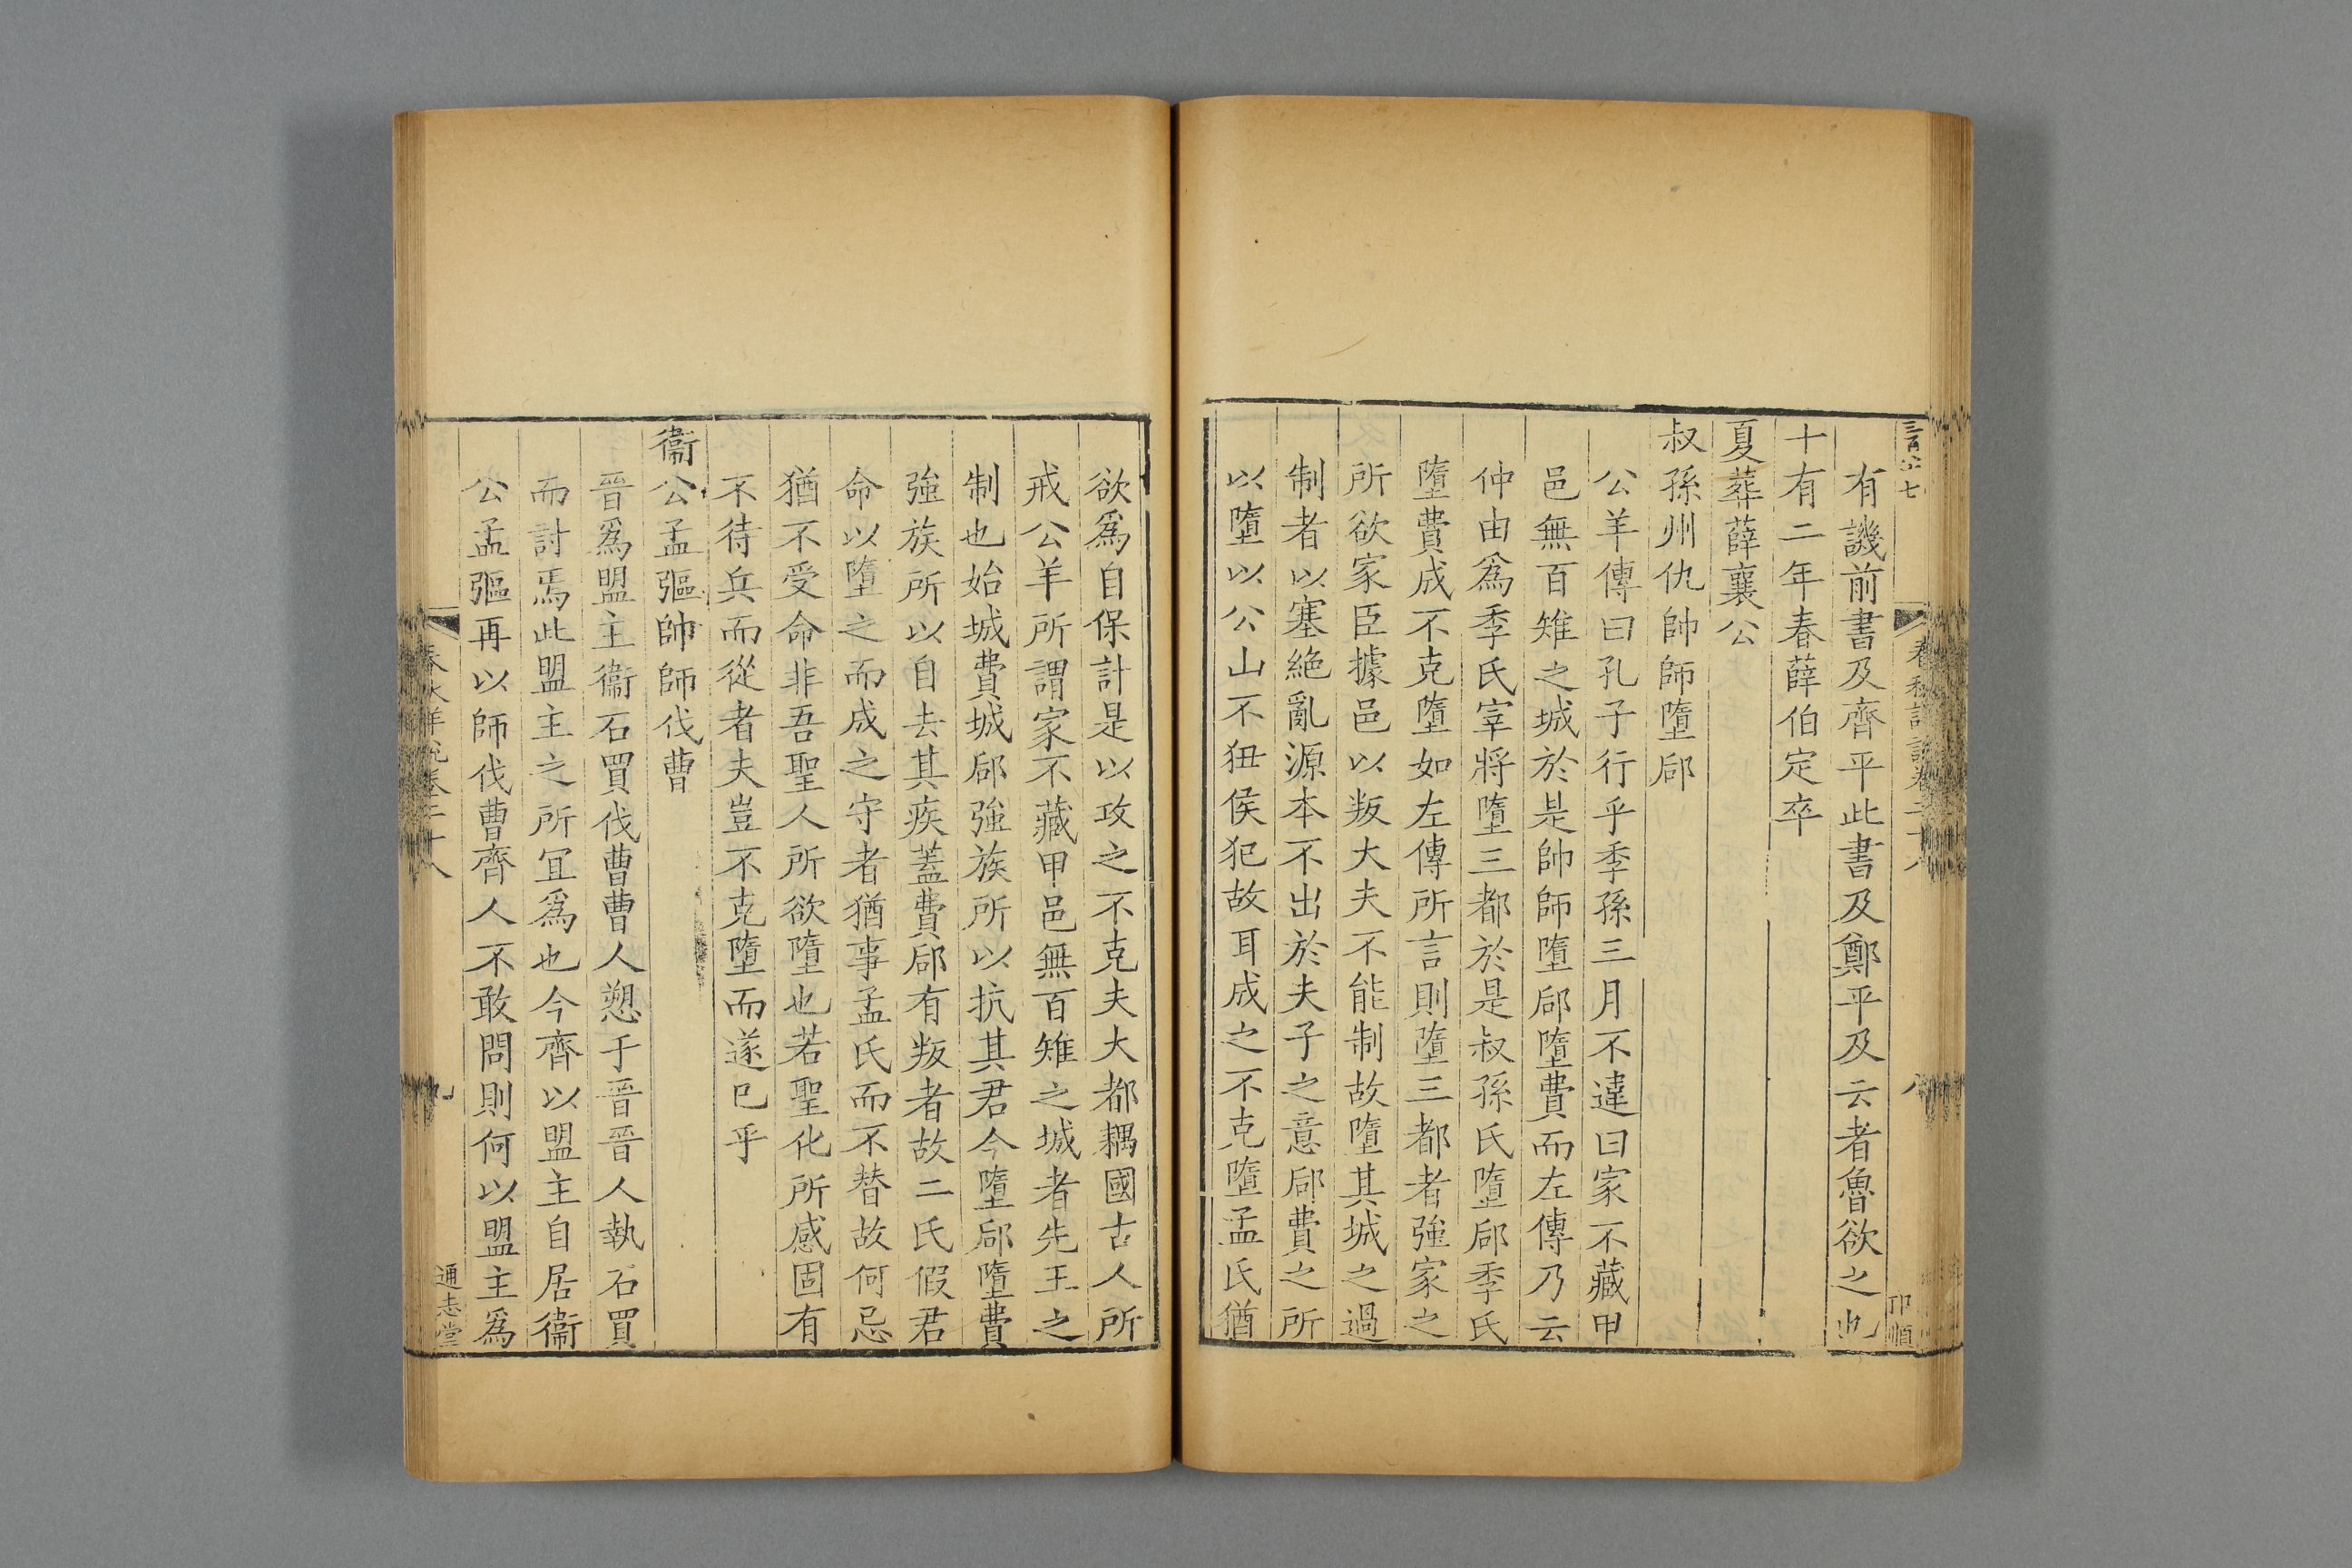 有譏前書及齊平此書及鄭平及云者魯欲之也
十有二年春薛伯定卒
夏葬薛襄公
叔孫州仇帥師墮郈
公羊傳曰孔子行乎季孫三月不違曰家不藏甲
邑無百雉之城於是帥師墮郈墮費而左傳乃云
仲由爲季氏宰將墮三都於是叔孫氏墮郈季氏
墮費成不克墮如左傳所言則墮三都者強家之
所欲家臣據邑以叛大夫不能制故墮其城之過
制者以塞絶亂源本不出於夫子之意郈費之所
以墮以公山不狃侯犯故耳成之不克墮孟氏猶
欲爲自保計是以攻之不克夫大都耦國古人所
戒公羊所謂家不藏甲邑無百雉之城者先王之
制也始城費城郈強族所以抗其君今墮郈墮費
強族所以自去其疾蓋費郈有叛者故二氏假君
命以墮之而成之守者猶事孟氏而不替故何忌
猶不受命非吾聖人所欲墮也若聖化所感固有
不待兵而從者夫豈不克墮而遂已乎
衞公孟彄帥師伐曹
晉爲盟主衞石買伐曹曹人愬于晉晉人執石買
而討焉此盟主之所宜爲也今齊以盟主自居衞
公孟彄再以師伐曹齊人不敢問則何以盟主爲
春秋詳說卷二十八
九
通志堂